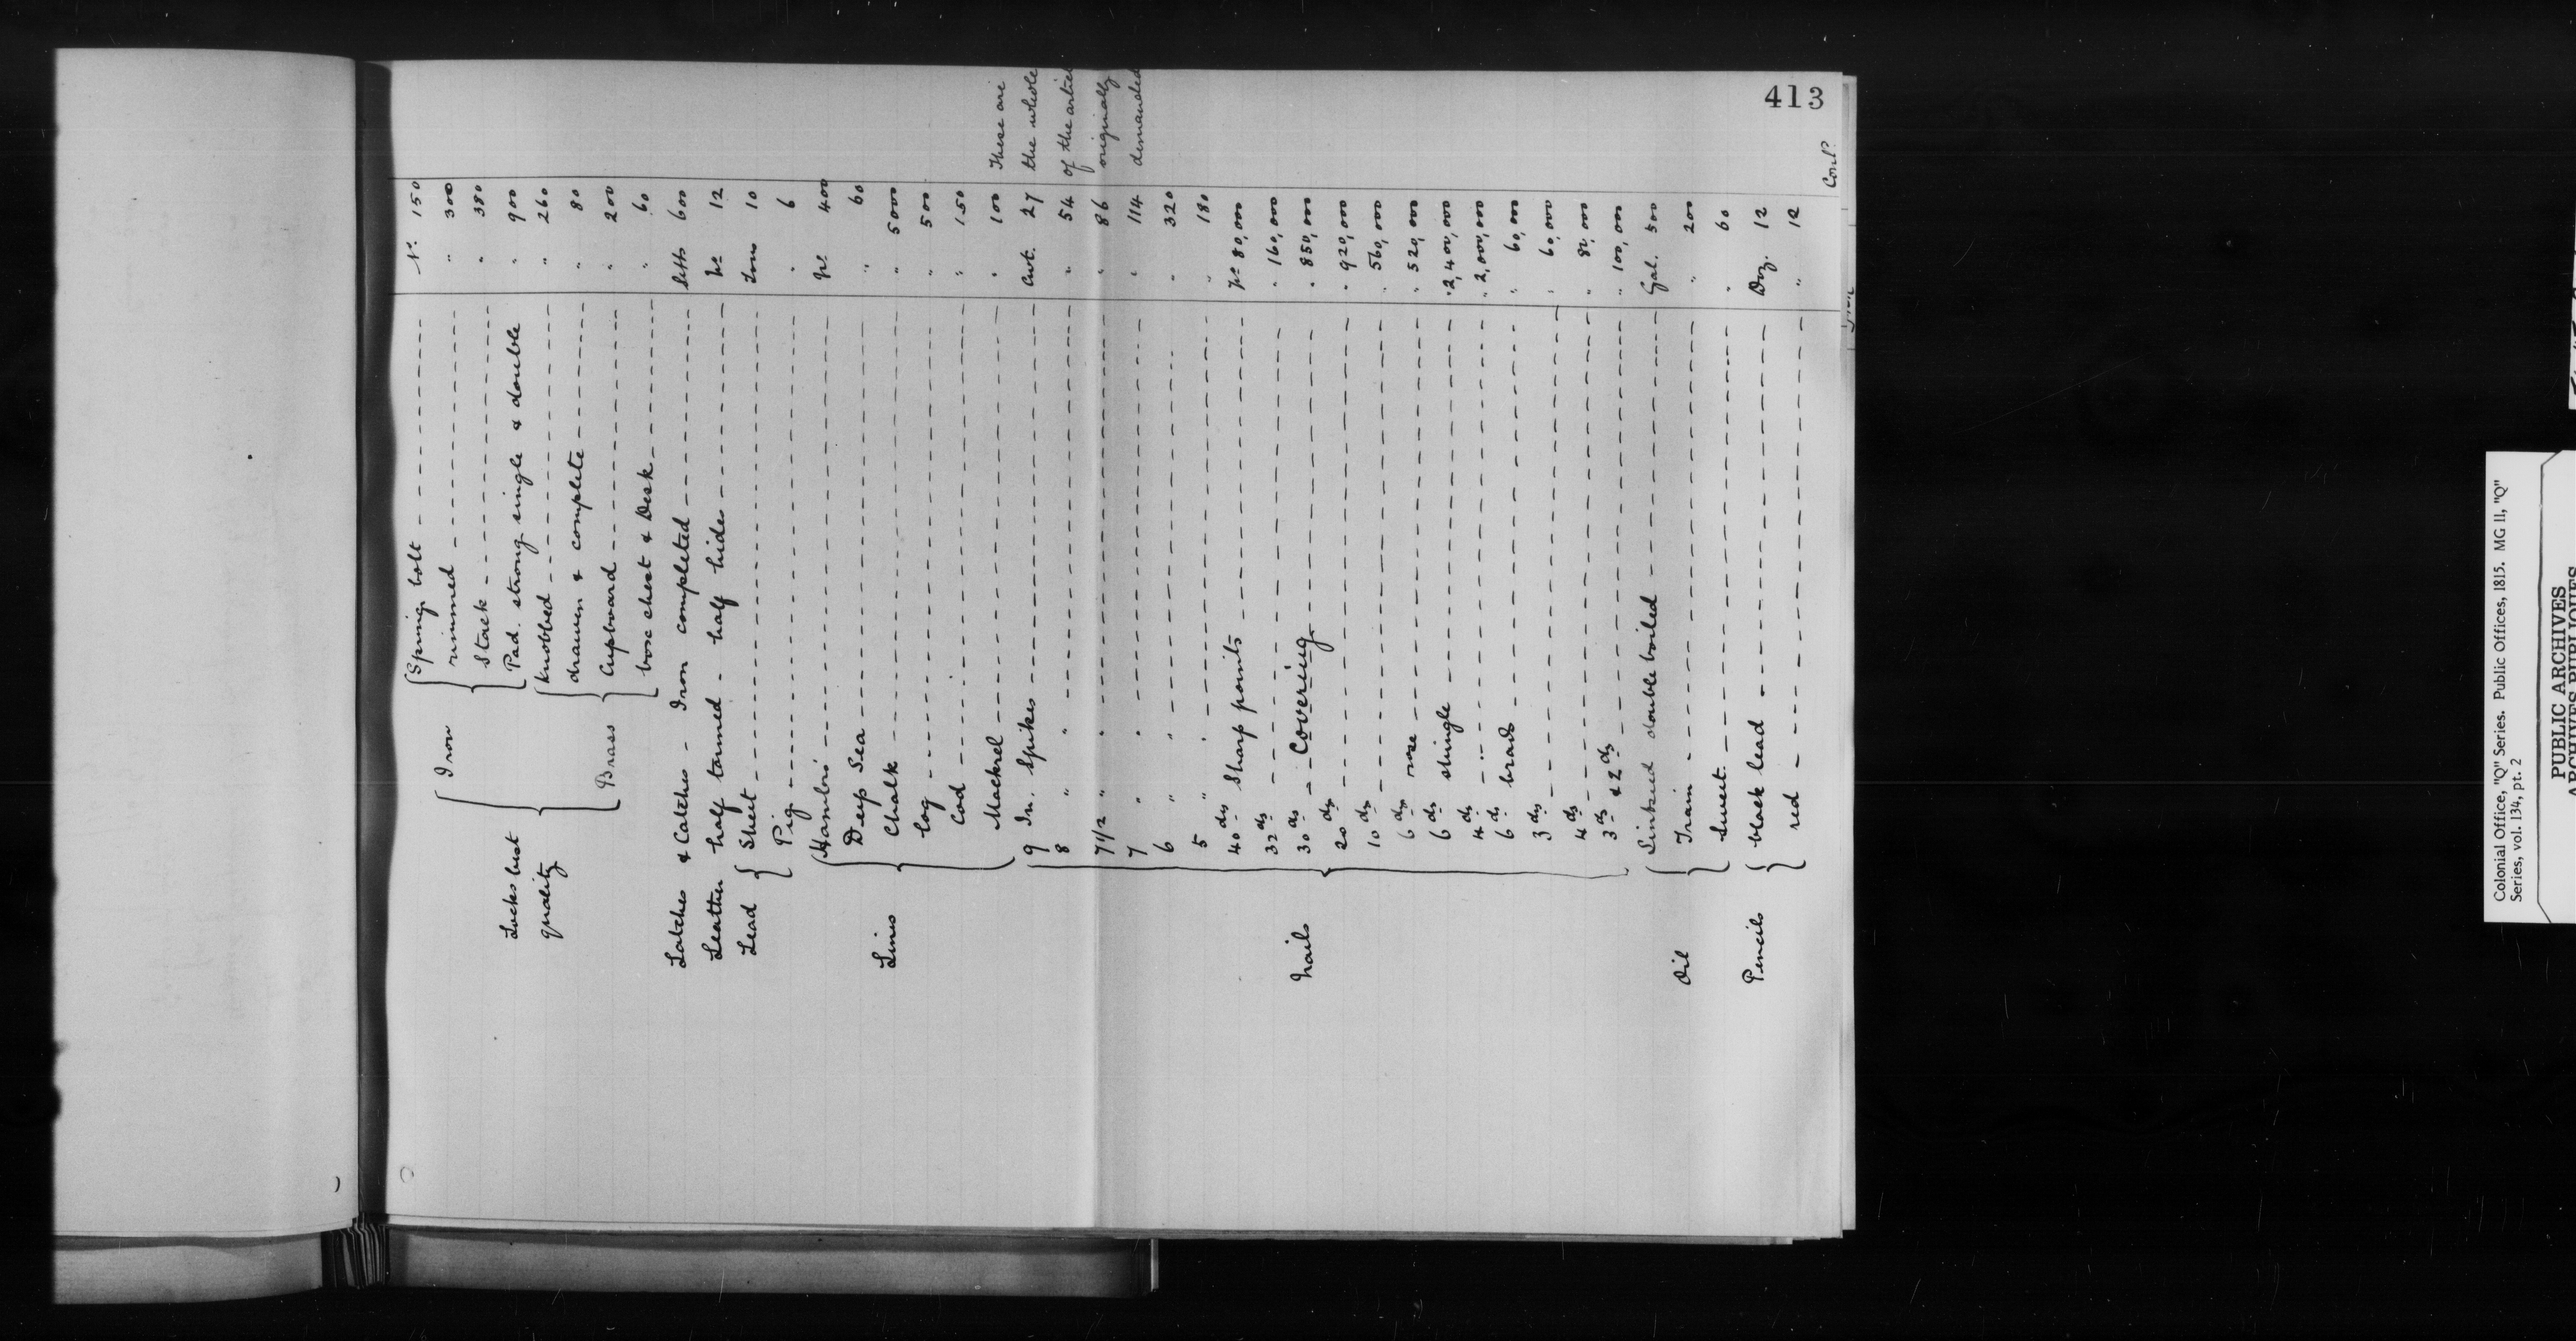 413
Locks best quality { Iron { Spring bolt - - - No. 150
rimmed - - - " 300
Stock - - - " 380
Pad. strong single & double " 900
{ Brass { Knobbed - - - " 260
drawer & complete - - - " 80
Cupboard - - - " 200
box chest & Desk - - - " 60
Latches & Catches - Iron completed - - - Setts 600
Leather half tanned - half hides - - - No 12
Lead { Sheet - - - Tons 10
Pig - - - " 6
Lines { Hambro' - - - No. 400
Deep Sea - - - " 60
Chalk - - - " 5000
Log - - - " 500
Cod - - - " 150
Mackrel - - - " 100
Nails { 9 In. Spikes - - - Cwt. 27
8 " " - - - " 54
7 1/2 " " - - - " 86
7 " " - - - " 114
6 " " - - - " 320
5 " " - - - " 180
These are
the whole
of the articles
originally
demanded
40 ds Sharp points - - - No 80,000
32 ds - - - " 160,000
30 ds - - Covering - - - " 850,000
20 ds - - - " 920,000
10 ds - - - " 560,000
6 ds rose - - - " 520,000
6 ds shingle - - - " 2,400,000
4 ds - - - " 2,000,000
6 ds brads - - - " 60,000
3 ds - - - " 60,000
4 ds - - - " 80,000
3 ds & 2 ds - - - " 100,000
Oil { Linseed double boiled - - - Gal. 500
Train - - - " 200
Sweet - - - " 60
Pencils { black lead - - - Doz. 12
red - - - " 12
Cont'd
Colonial Office, "Q" Series. Public Offices, 1815. MG 11, "Q"
Series, vol. 134, pt. 2
PUBLIC ARCHIVES
ARCHIVES PUBLIQUES